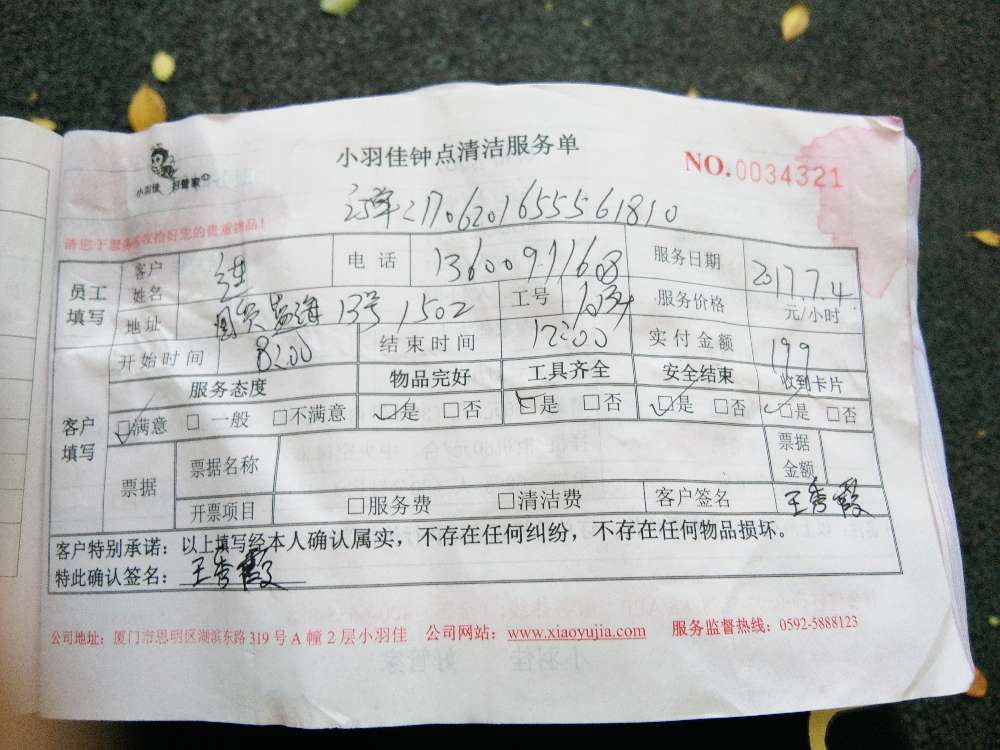 小羽佳 好管家
小羽佳钟点清洁服务单
NO.0034321
170620165556181０
请您于服务前收拾好您的贵重物品！
员工填写 客户姓名 电话 13600911608 服务日期 2017.7.4
地址 国贸蓝海 13号1502 工号 服务价格 元/小时
开始时间 8:00 结束时间 12:00 实付金额 199
客户填写 服务态度 物品完好 工具齐全 安全结束 收到卡片
☑满意 □一般 □不满意 ☑是 □否 ☑是 □否 ☑是 □否 ☑是 □否
票据 票据名称 票据金额
开票项目 □服务费 □清洁费 客户签名 王秀霞
客户特别承诺：以上填写经本人确认属实，不存在任何纠纷，不存在任何物品损坏。
特此确认签名：王秀霞
公司地址：厦门市思明区湖滨东路319号A幢2层小羽佳 公司网站：www.xiaoyujia.com 服务监督热线：0592-5888123